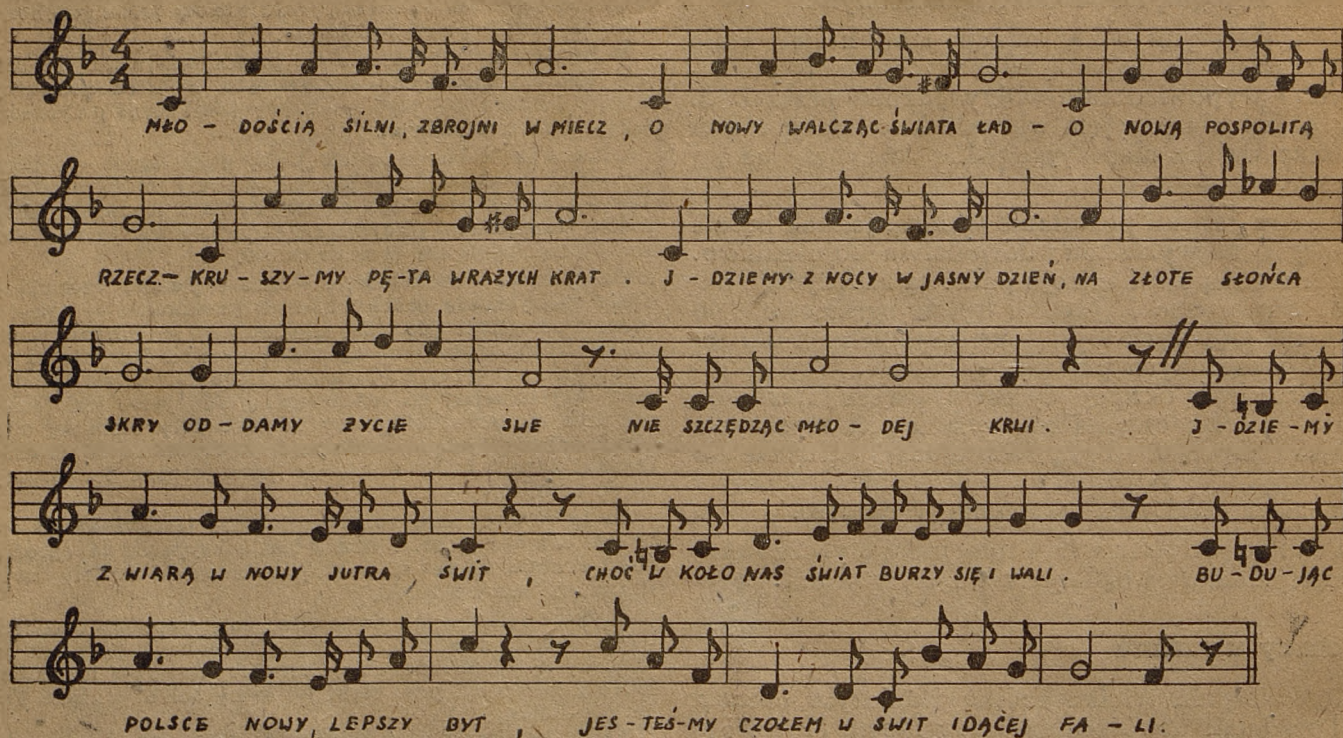 MŁO - DOŚCIĄ SILNI, ZBROJNI W MIECZ, O NOWY WALCZĄC ŚWIATA ŁAD - O NOWĄ POSPOLITĄ
RZECZ - KRU - SZY - MY PĘ - TA WRAŻYCH KRAT. J - DZIEMY Z NOCY W JASNY DZIEŃ, NA ZŁOTE SŁOŃCA
SKRY OD - DAMY ŻYCIE SWE NIE SZCZĘDZĄC MŁO - DEJ KRWI. J - DZIE - MY
Z WIARĄ W NOWY JUTRA ŚWIT, CHOĆ W KOŁO NAS ŚWIAT BURZY SIĘ I WALI. BU - DU - JĄC
POLSCE NOWY, LEPSZY BYT, JES - TEŚ - MY CZOŁEM W ŚWIT IDĄCEJ FA - LI.